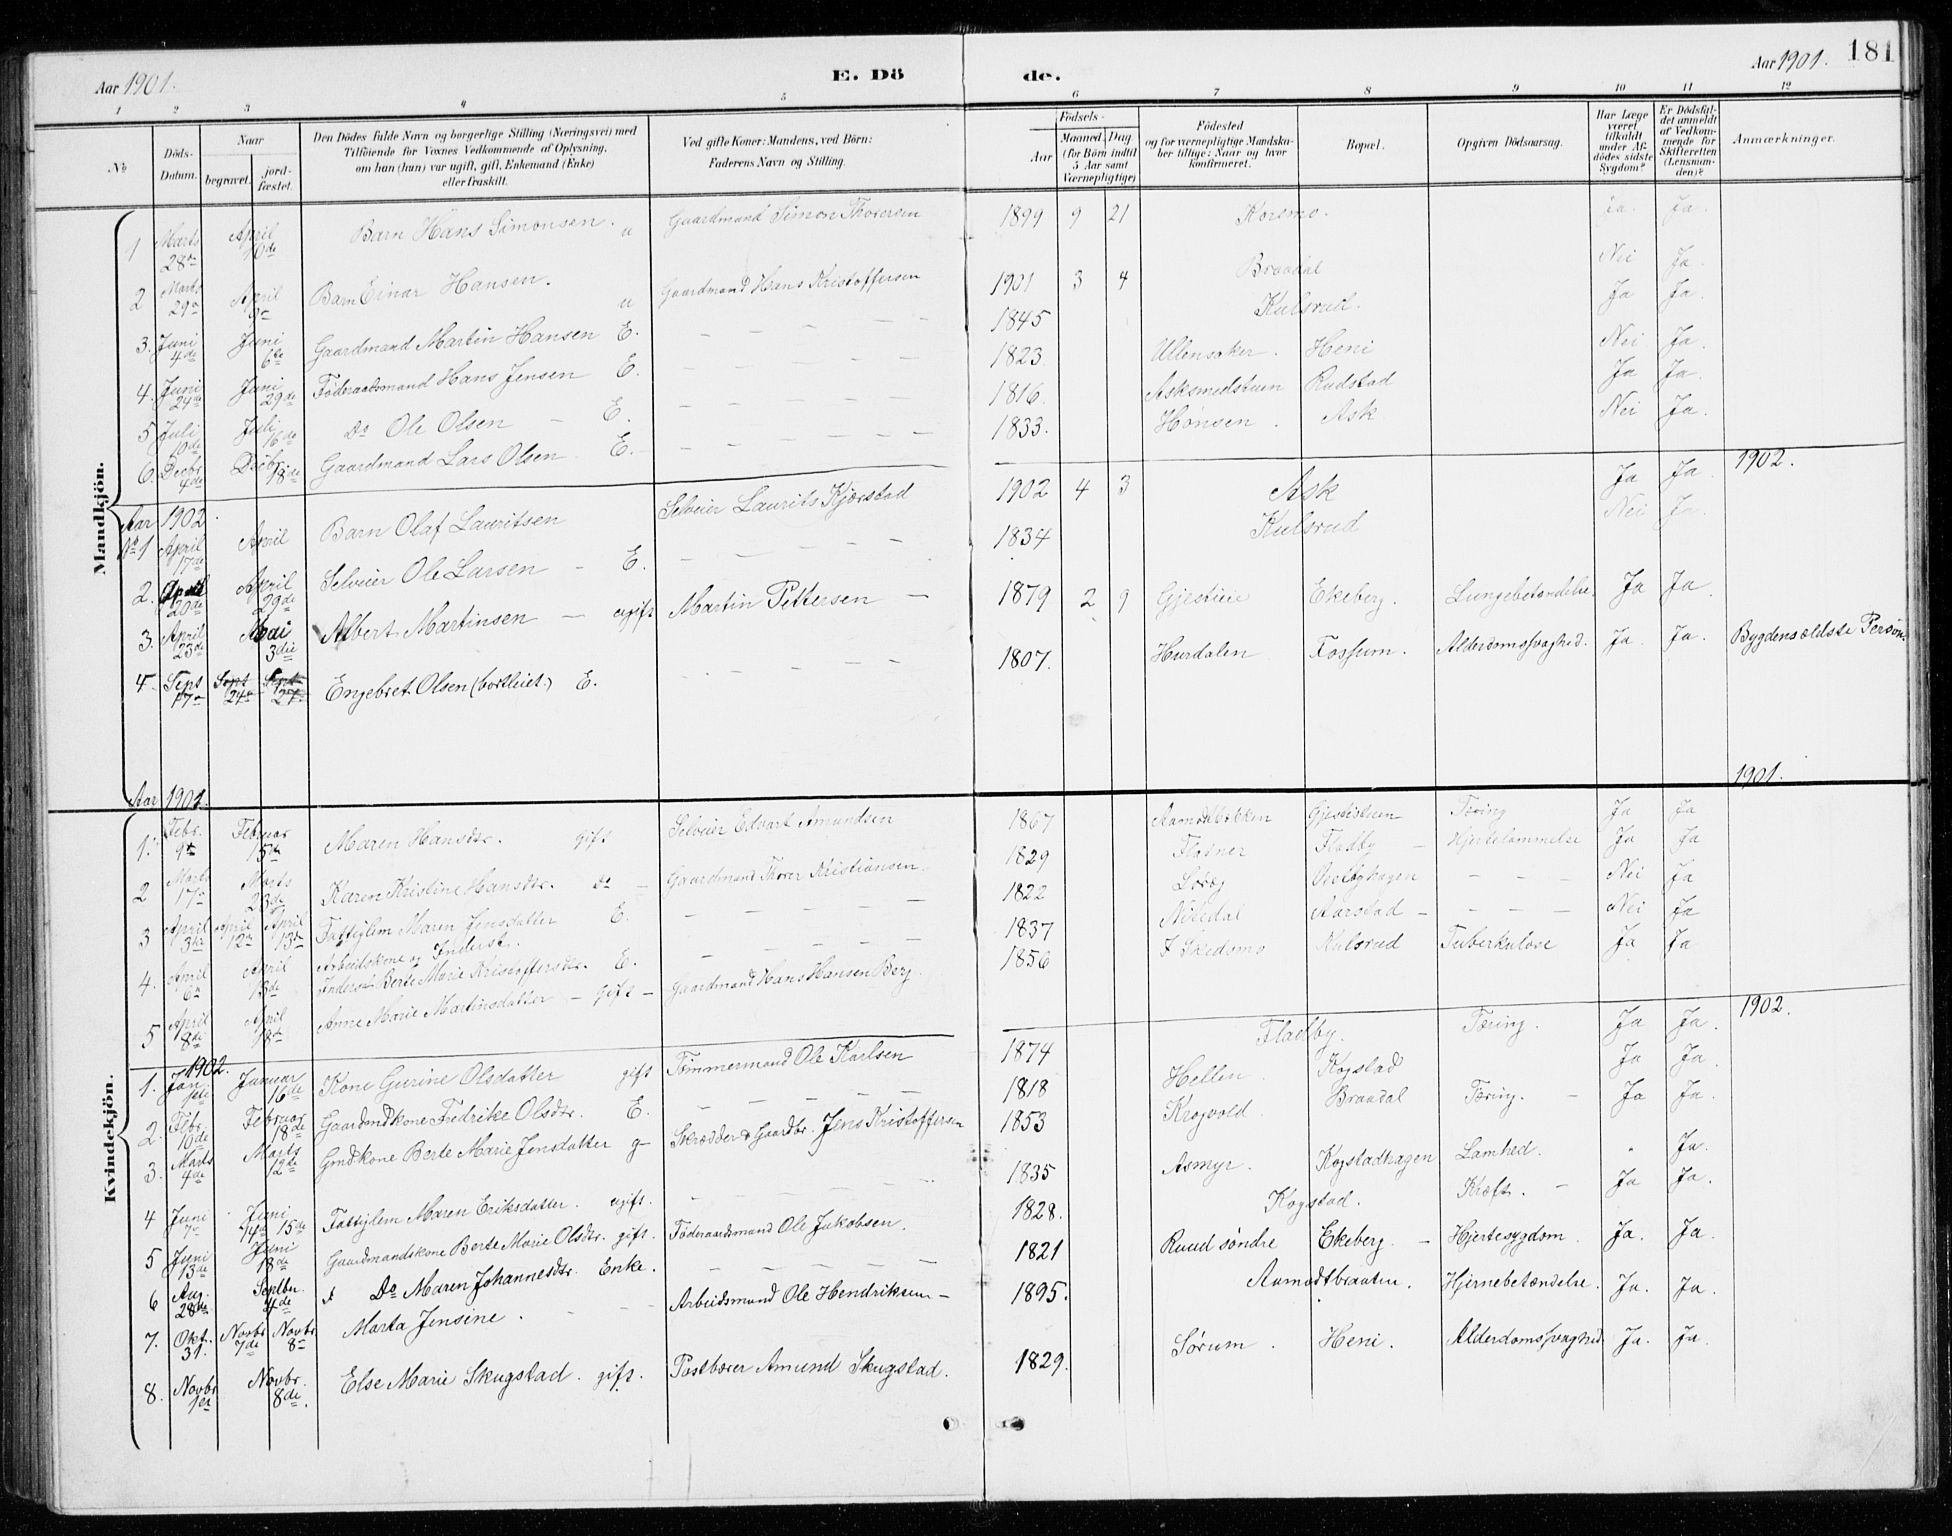 Aar 1901. E. Dö de. Aar 1901. 181
1 2 3 4 5 6 7 8 9 10 11 12
No
Döds-Datum.
Naar
begravet.
jordfæstet.
Den Dödes fulde Navn og borgerlige Stilling (Næringsvei) med Tilföiende for Voxnes Vedkommende af Oplysning, om han (hun) var ugift, gift, Enkemand (Enke) eller fraskilt.
Ved gifte Koner: Mandens, ved Börn: Faderens Navn og Stilling.
Födsels-
Aar
Maaned. Dag
(for Börn indtil 5 Aar samt Værnepligtige)
Födested og for værnepligtige Mandskaber tillige: Naar og hvor konfirmeret.
Bopæl.
Opgiven Dödsaarsag.
Har Læge været tilkaldt under Afdödes sidste Sygdom?
Er Dödsfaldet anmeldt af Vedkommende for Skifteretten (Lensmanden)?
Anmærkninger.
Mandkjön.
1 Marts 28de April 10de Barn Hans Simonsen. u Gaardmand Simon Thoresen 1899 9 21 Korsmo. Ja. Ja.
2 Marts 29de April Barn Einar Hansen. u Gaardmand Hans Kristoffersen 1901 3 4 Braadal Nei Ja.
3. Juni 4de Juni 6te Gaardmand Martin Hansen E. 1845 Kulsrud. Ja Ja.
4. Juni 24de Juni 29de Föderaadsmand Hans Jensen E. 1823 Ullensaker. Heni Nei Ja.
5 Juli 10de Juli 16de Do Ole Olsen E. 1816 Asksmedstuen Rudstad Ja Ja.
6. Decbr 4de Decbr. 18de Gaardmand Lars Olsen. E. 1833. Hönsen. Ask Nei Ja.
Aar 1902. 1902.
No 1 April 17de April Barn Olaf Lauritsen Selveier Laurits Kjærstad 1902 4 3 Ask Ja Ja.
2. April 20de April 29de Selveier Ole Larsen - E. 1834 Kulsrud Nei Ja.
3. April 23de Mai 3die Albert Martinsen - ugift Martin Pettersen - 1879 2 9 Gjestiie Ekeberg. Lungebetændelse. Ja Ja.
4. Sept 17de Sept 24de Sept Engebret Olsen (bortleiet.) E. 1807. Hurdalen Fossum. Alderdomssvaghed. Ja Ja. Bygdens ældste Person.
Aar 1901. 1901.
Kvindekjön.
1. Febr. 9de Februar 15de Maren Hansdtr. gift Selveier Edvart Amundsen 1867 Aamodtbakken Gjestistuen Tæring Ja Ja
2 Marts 17de Marts 23de Karen Kristine Hansdtr. do - Gaardmand Thorer Kristiansen. 1829 Fladner Fladby - Hjertelammelse Ja Ja
3 April 3die April 12te April 13de Fattiglem Maren Jensdatter E. 1822 Vestbyhagen Nei Ja
4. April 6te April 13de Arbeidskone og Inderst. Berte Marie Kristoffersdtr. E. 1837 Nitedal Aarstad - Nei Ja
5 April 8de April 18de Anne Marie Martinsdatter - gift - Gaardmand Hans Hansen Berg. 1856 Skedsmo Kulsrud Tuberkulose Ja Ja
1902. 1902.
1. Jan. Januar 16de Kone Gurine Olsdatter gift Tømmermand Ole Karlsen 1874 Fladby. Tæring. Ja Ja.
2. Febr. 10de Februar 18de Gaardmdkone Fredrike Olsdtr. E. 1818 Hellen. Kogstad Ja Ja.
3. Marts 4de Marts 12te Gmdkone Berte Marie Jensdatter g- Skrædder & Gaardbr. Jens Kristoffersen 1853 Krogvold. Braadal Tæring. - Ja Ja.
4 Juni 7de Juni 14de 15de Fattiglem Maren Eriksdatter. ugift. 1835 Asmyr. Kogstadhagen Lamhed. " Ja.
5 Juni 13de Juni 18de Gaardmandskone Berte Marie Olsdtr. gift. Föderaadsmand Ole Jakobsen. 1828. Kogstad. Kræft. - Ja Ja.
6 Aug. 28de Septbr 4de Do Maren Johannesdtr. Enke. 1821 Ruud söndre Ekeberg. - Hjertesygdom. Ja. Ja.
7. Okt. 31. Novbr 7de Novbr. 8de Marta Jensine. Arbeidsmand Ole Hendriksen - 1895. Aamodtbraaten. Hjernebetændelse. Ja. Ja.
8. Novbr 1ste Novbr. 8de. Else Marie Skugstad. gift. Postbærer Amund Skugstad. 1829. Sörum. Heni. Alderdomssvaghed. Ja. Ja.